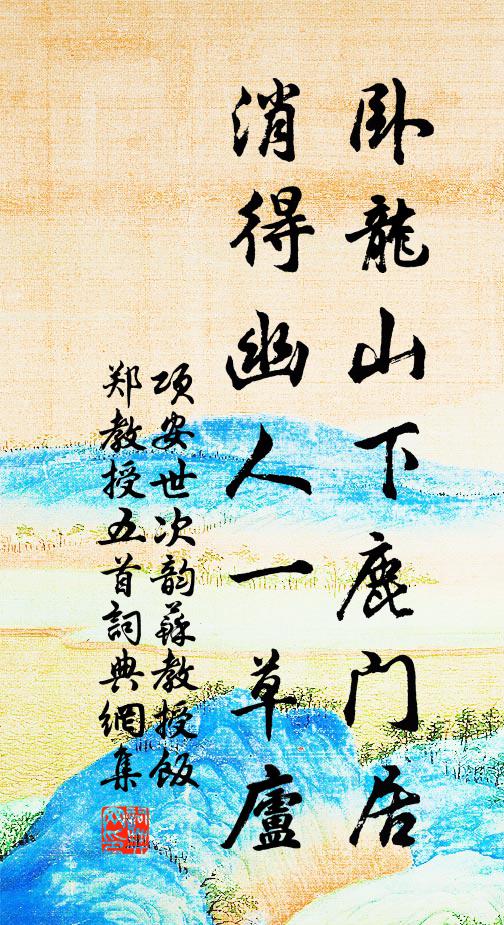 卧龍山下鹿门居
消得幽人一草廬
项安世次韵蘇教授飯
郑教授五首詞典網集